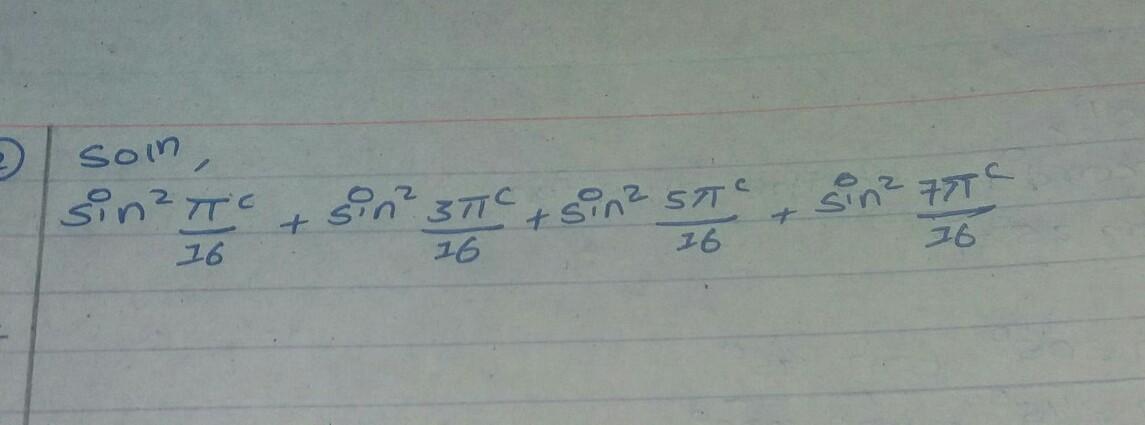 Soln,
sin² πᶜ/16 + sin² 3πᶜ/16 + sin² 5πᶜ/16 + sin² 7πᶜ/16